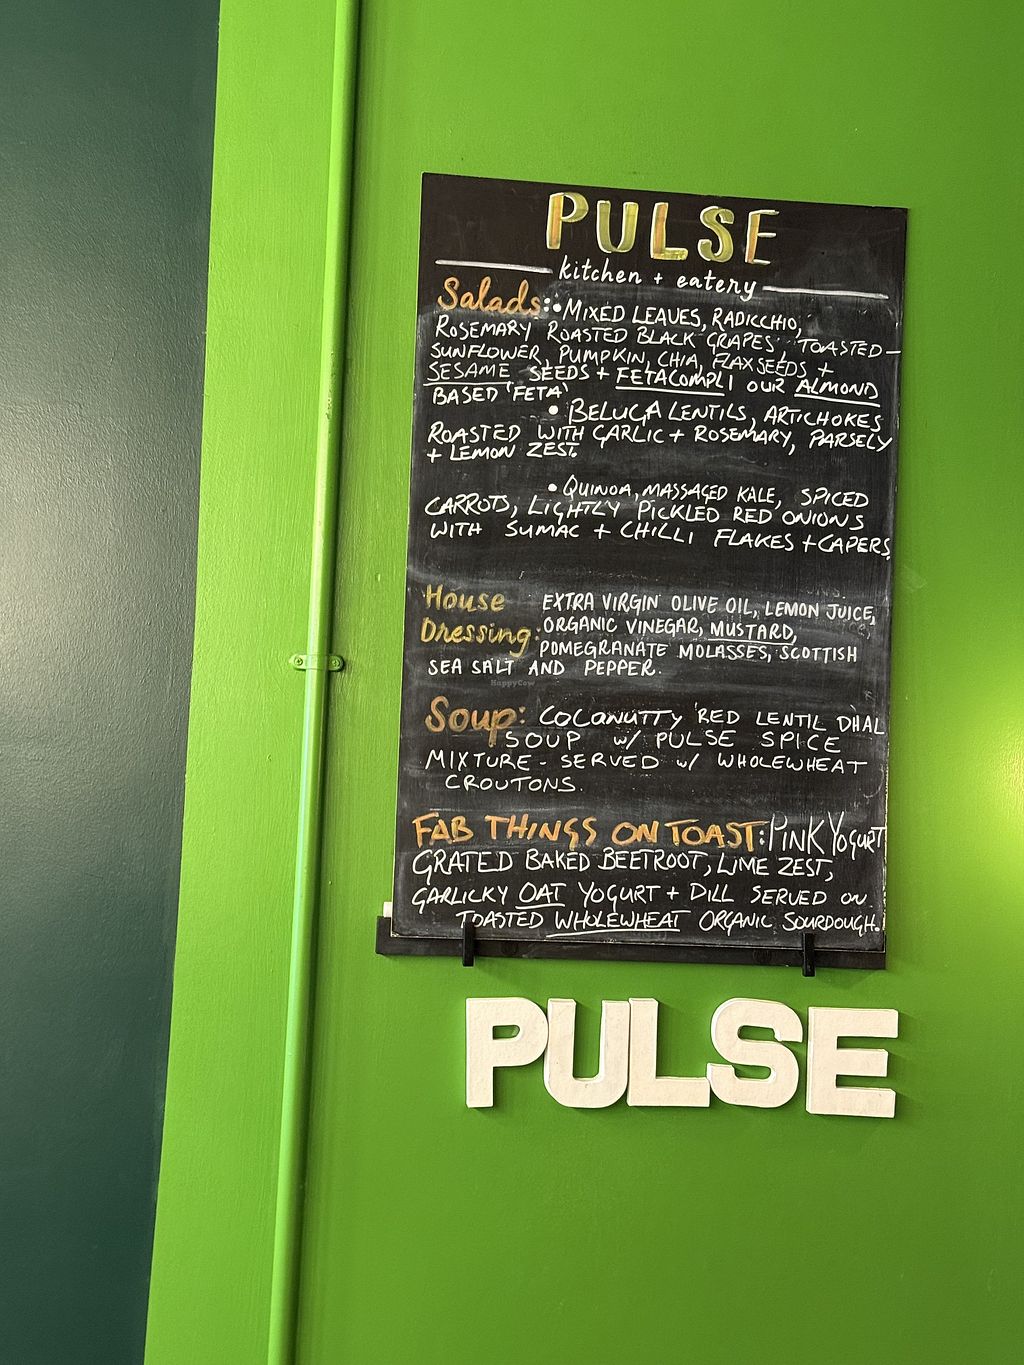 PULSE
kitchen + eatery
Salads: • MIXED LEAVES, RADICCHIO,
ROSEMARY ROASTED BLACK GRAPES, TOASTED
SUNFLOWER, PUMPKIN, CHIA, FLAX SEEDS +
SESAME SEEDS + FETACOMPLI OUR ALMOND
BASED 'FETA'
• BELUGA LENTILS, ARTICHOKES
ROASTED WITH GARLIC + ROSEMARY, PARSELY
+ LEMON ZEST.
• QUINOA, MASSAGED KALE, SPICED
CARROTS, LIGHTLY PICKLED RED ONIONS
WITH SUMAC + CHILLI FLAKES + CAPERS.
House EXTRA VIRGIN OLIVE OIL, LEMON JUICE,
Dressing: ORGANIC VINEGAR, MUSTARD,
POMEGRANATE MOLASSES, SCOTTISH
SEA SALT AND PEPPER.
HappyCow
Soup: COCONUTTY RED LENTIL DHAL
SOUP w/ PULSE SPICE
MIXTURE - SERVED w/ WHOLEWHEAT
CROUTONS.
FAB THINGS ON TOAST: PINK YOGURT
GRATED BAKED BEETROOT, LIME ZEST,
GARLICKY OAT YOGURT + DILL SERVED ON
TOASTED WHOLEWHEAT ORGANIC SOURDOUGH.
PULSE